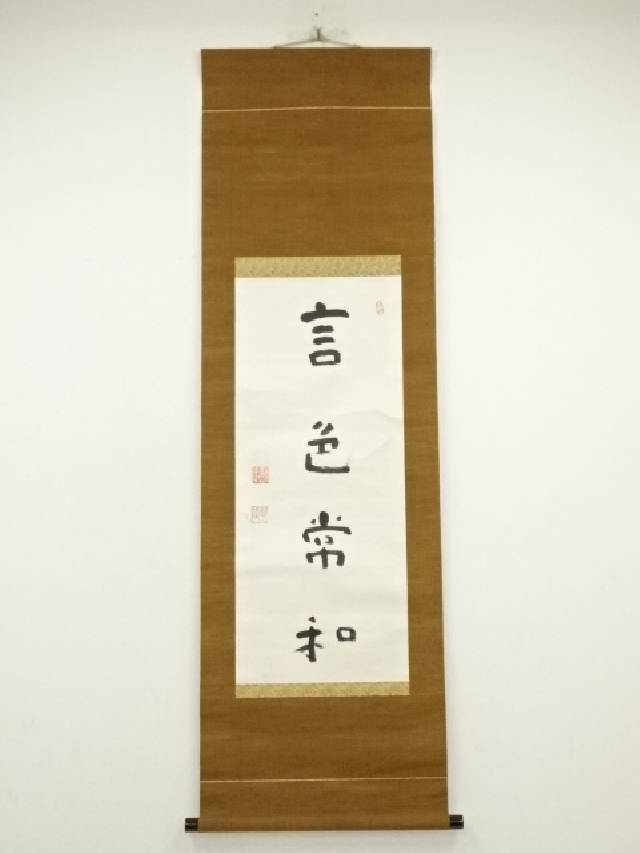 言色常和